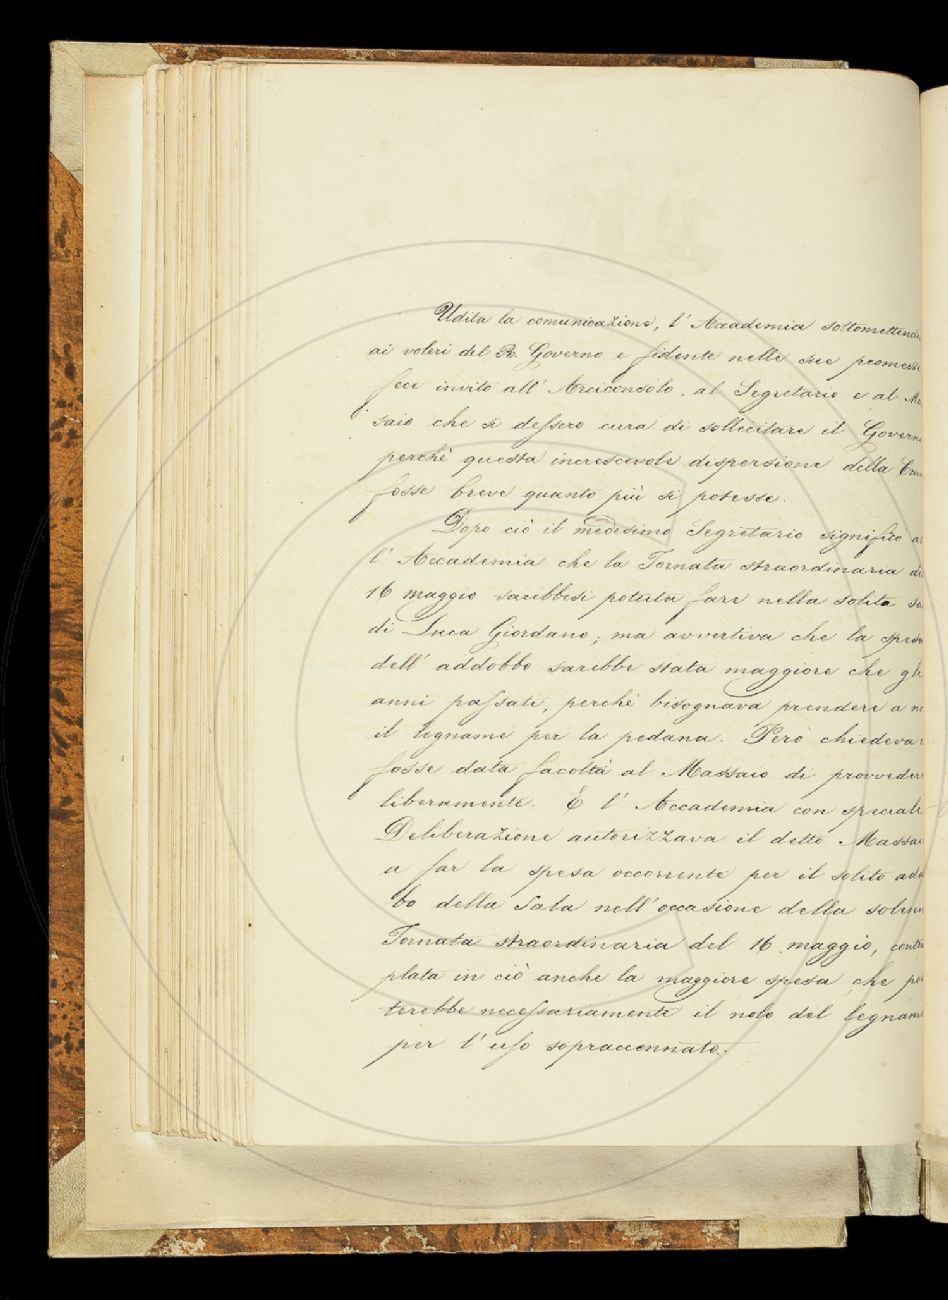 Udita la comunicazione, l' Accademia sottomettendo
ai voleri del R. Governo e fidente nelle sue promesse
fece invito all' Arciconsolo, al Segretario e al Ma
saio che si dessero cura di sollecitare il Govern
perchè questa increscevole dispersione della Crus
fosse breve quanto più si potesse.
Dopo ciò il medesimo Segretario significò a
l' Accademia che la Tornata straordinaria de
16 maggio sarebbesi potuta fare nella solita sa
di Luca Giordano; ma avvertiva che la spesa
dell' addobbo sarebbe stata maggiore che gli
anni passati, perchè bisognava prendere a no
il legname per la pedana. Però chiedeva
fosse data facoltà al Massaio di provvedere
liberamente. E l' Accademia con speciale
Deliberazione autorizzava il detto Massai
a far la spesa occorrente per il solito add
bo della Sala nell' occasione della solenn
Tornata straordinaria del 16 maggio, contem
plata in ciò anche la maggiore spesa che po
terebbe necessariamente il nolo del legname
per l' uso sopraccennato.